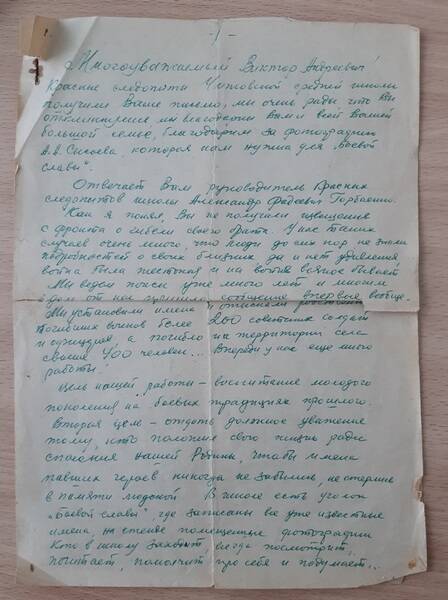 -1-
Многоуважаемый Виктор Андреевич!
Красные следопыты школы
получили Ваше письмо, мы очень рады что Вы
откликнулись и мы благодарны Вам и всей Вашей
большой семье, благодарим за фотографию
А.А. Сысоева, которая нам нужна для "Боевой
славы".
Отвечает Вам руководитель Красных
следопытов школы Александр Фадеевич Горбаенко.
Как я понял, Вы не получали извещения
с фронта о гибели своего брата. У нас таких
случаев очень много, что люди до сих пор не знали
подробностей о своих близких да и нет удивления,
война была жестокая и на войне всякое бывает
Мы ведем поиск уже много лет и многим
сообщение впервые вообще.
Мы установили имена 200 советских солдат
погибших воинов более
и офицеров, а погибло на территории села
свыше 400 человек... Впереди у нас еще много
работы!
Цель нашей работы - воспитание молодого
поколения на боевых традициях прошлого.
Вторая цель - отдать должное уважение
тому, кто положил свою жизнь ради
спасения нашей Родины, чтобы имена
павших героев никогда не забылись, не стерлись
в памяти людской. В школе есть уголок
"Боевой славы" где записаны все уже известные
имена, на стенде помещенные фотографии
Кто в школу заходит, всегда посмотрит,
почитает, помолчит про себя и подумает...